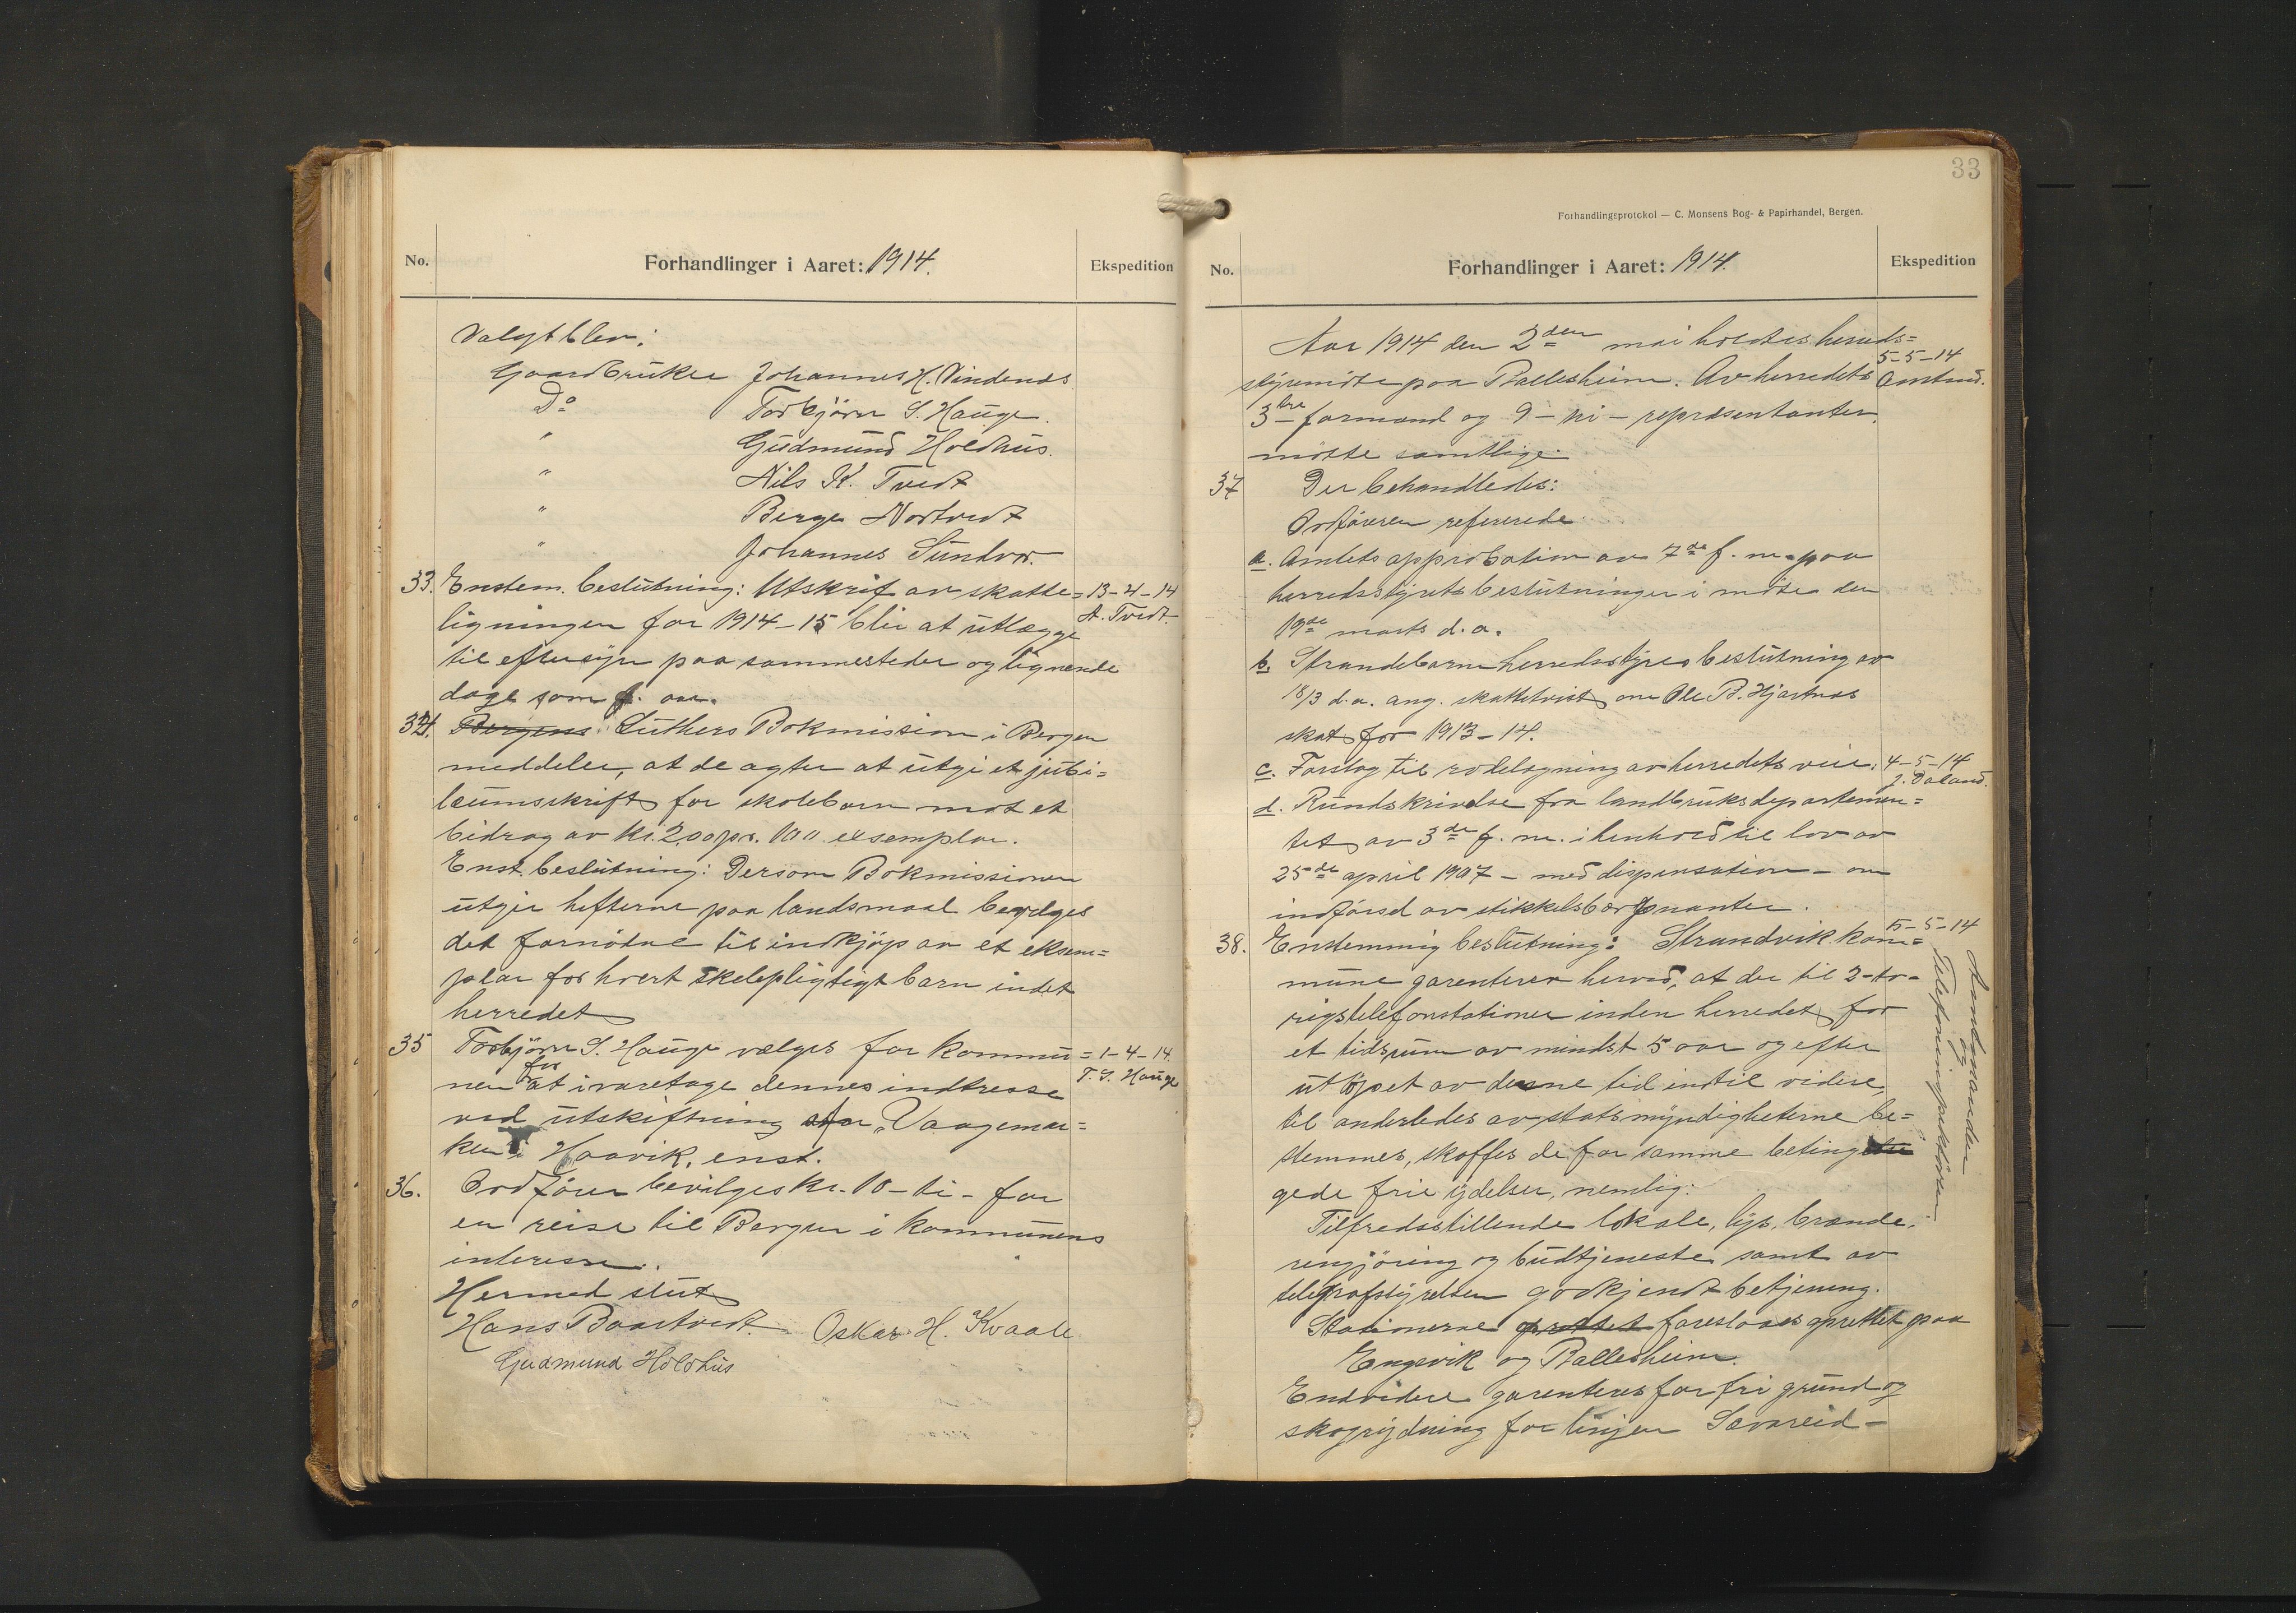 No.
Forhandlinger i Aaret: 1914.
Ekspedition
Valgt blev:
Gaardbruker Johannes H. Vindenes
Do Torbjörn S. Hauge.
" Gudmund Holdhus.
" Nils K. Tvedt
" Berge Nortvedt
" Johannes Sundvor.
33. Enstem. beslutning: Utskrif av skatte= 13-4-14
ligningen for 1914-15 blir at utlægge A. Tvedt.
til eftersyn paa sammesteder og lignende
dage som f. aar.
34. Bergens Luthers Bokmission i Bergen
meddeler, at de agter at utgi et jubi=
læumsskrift for skolebarn mot et
bidrag av kr. 2,00 pr. 100 exsemplar.
Enst. beslutning: Dersom Bokmissionen
utgir hefterne paa landsmaal bevilges
det fornödne til indkjöp av et eksem=
plar for hvert skolepligtigt barn indet
herredet
35 Torbjörn S. Hauge vælges for kommu= 1-4-14.
nen for at ivaretage dennes indtresse T. S. Hauge
ved utskiftning av "Vaagemar=
ken i Haavik, enst.
36. Ordförer bevilges kr. 10 - ti - for
en reise til Bergen i kommunens
interesse.
Hermed slut
Hans Baartvedt. Oskar H. Kvaale
Gudmund Holdhus
33
Forhandlingsprotokol — C. Monsens Bog- & Papirhandel, Bergen.
No.
Forhandlinger i Aaret: 1914.
Ekspedition
Aar 1914 den 2den mai holdtes herreds=
styremöte paa Ballesheim. Av herredets
5-5-14
Amtmd.
3tre formænd og 9 - ni - repræsentanter
mötte samtlige.
37 Der behandledes:
Ordföreren refererede
a. Amtets approbation av 7de f. m. paa
herredsstyrets beslutninger i möte den
19de marts d. a.
b. Strandebarm herredsstyres beslutning av
18/3 d. a. ang. skattetvist om Ole B. Hjartnes
skat for 1913-14.
c. Forslag til rodelægning av herredets veie. 4-5-14
J. Daland.
d. Rundskrivelse fra landbruksdepartemen=
tet av 3de f. m. i henhold til lov av
25de april 1907 - med dispensation - om
indförsel av stikkelsbærplanter.
38. Enstemmig beslutning: Strandvik kom= 5-5-14
mune garenterer herved, at der til 2-to-
rigstelefonstationer inden herredet for
et tidsrum av mindst 5 aar og efter
utlöpet av denne tid indtil videre,
til anderledes av statsmyndigheterne be=
stemmes, skaffes de for samme beting
gede frie ydelser, nemlig:
Tilfredsstillende lokale, lys, brænde,
rengjöring og budtjeneste samt av
telegrafstyrelsen godkjendt betjening.
Stationerne oprettet foreslaaes oprettet paa
Engevik og Ballesheim.
Endvidere garenteres for fri grund og
skogrydning for linjen Sævareid-
Amtmanden
og
Telefoninspektören